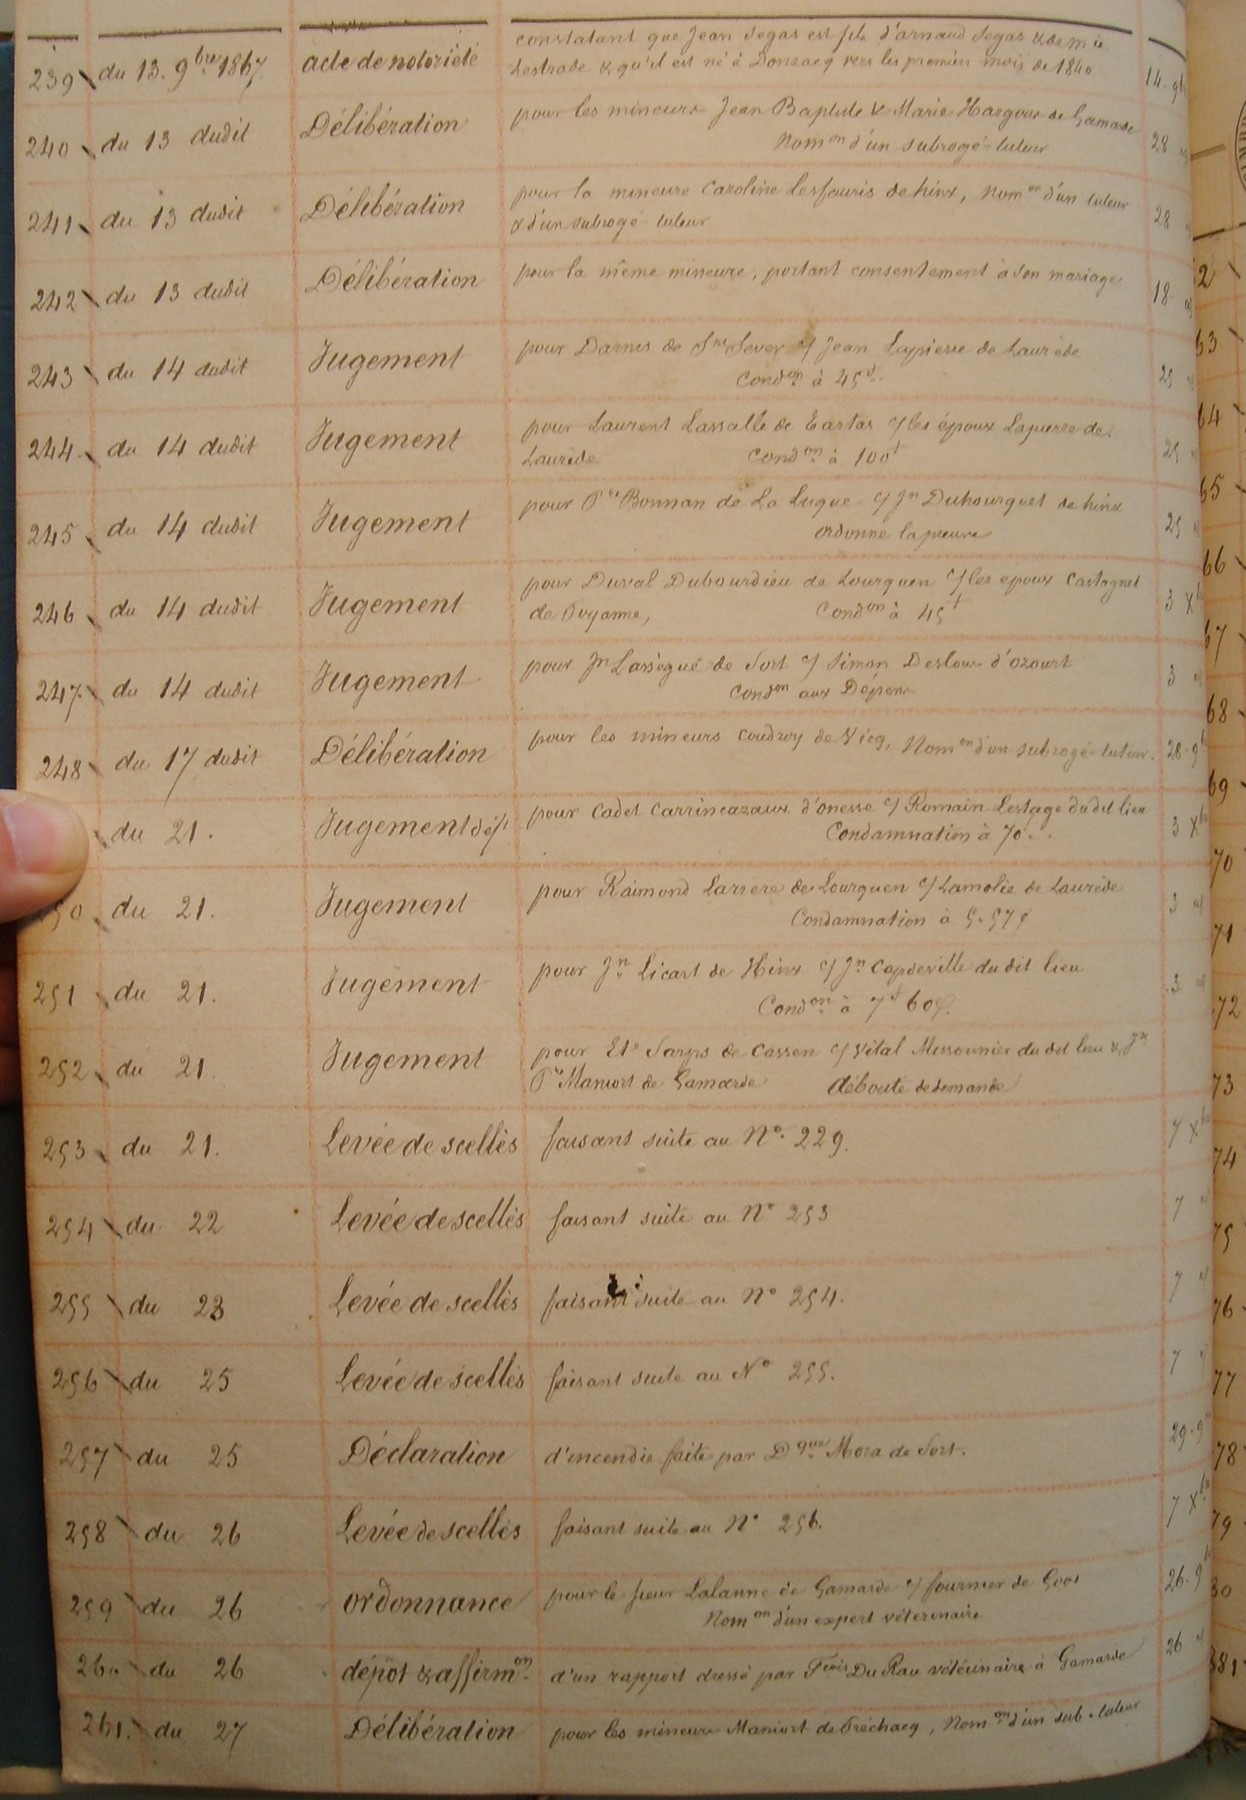 239 du 13. 9bre 1867 acte de notoriété constatant que Jean Segas est fils d'arnaud Segas & de mie
Lestrade & qu'il est né à Donzacq vers les premiers mois de 1840 14 9b
240 du 13 dudit Délibération pour les mineurs Jean Baptiste & Marie Hargous de Gamarde
Nomon d'un subrogé-tuteur 28
241 du 13 dudit Délibération pour la mineure Caroline Lesfauris de hinx, Nomon d'un tuteur
& d'un subrogé-tuteur 28
242 du 13 dudit Délibération pour la même mineure, portant consentement à son mariage 18
243 du 14 dudit Jugement pour Darnis de St Sever c/ Jean Lapierre de Laurède
Condon à 45f. 25
244 du 14 dudit Jugement pour Laurent Lassalle de Tartas c/ les époux Lapierre de
Laurède Condon à 100f 25
245 du 14 dudit Jugement pour Pre Bonnan de La Luque c/ Jn Duhourquet de hinx
ordonne la preuve 25
246 du 14 dudit Jugement pour Duval Dubourdieu de Lourquen c/ les epoux Castagnet
de Poyanne, Condon à 45f 3 Xb
247 du 14 dudit Jugement pour Jn Lassègue de Sort c/ Simon Deslous d'ozourt
Condon aux Dépens 3
248 du 17 dudit Délibération pour les mineurs Coudroy de Vicq, Nomon d'un subrogé-tuteur. 28 9b
du 21. Jugement déft pour Cadet Carrincazaux d'onesse c/ Romain Lestage dudit lieu
Condamnation à 70 3 Xb
50 du 21. Jugement pour Raimond Larrere de Lourquen c/ Lamolie de Laurède
Condamnation à 5.57c 3
251 du 21. Jugement pour Jn Licart de Hinx c/ Jn Capdeville du dit lieu
Condon à 7f 60c. 3
252 du 21. Jugement pour Ete Sarps de Cassen c/ Vital Messonnier du dit lieu & Jn
Pre Maniort de Gamarde débouté de demande
253 du 21. Levée de scellés faisant suite au No. 229. 7 Xbre
254 du 22 Levée de scellés faisant suite au No 253 7
255 du 23 Levée de scellés faisant suite au No 254. 7
256 du 25 Levée de scellés faisant suite au No 255. 7
257 du 25 Déclaration d'incendie faite par Dque Mora de Sort. 29. 9
258 du 26 Levée de scellés faisant suite au No 256. 7 Xb
259 du 26 ordonnance pour le sieur Lalanne de Gamarde c/ fournier de Goos
Nomon d'un expert véterinaire 26. 9
260 du 26 dépot & affirmon d'un rapport dressé par Fçois Du Rau vétérinaire à Gamarde 26
261. du 27 Délibération pour les mineurs Maniort de Préchacq, Nomon d'un sub-tuteur
2
63
64
65
66
67
68
69
70
71
72
73
74
75
76
77
78
79
80
81